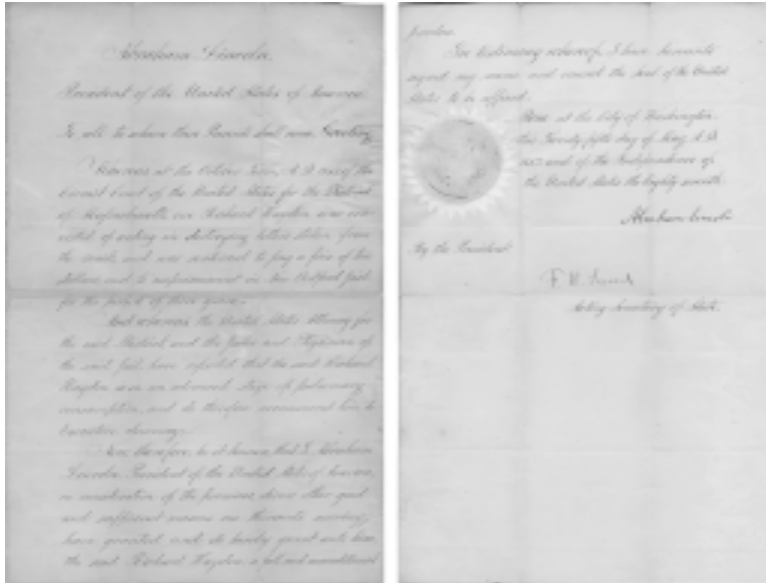 Abraham Lincoln,
President of the United States of America,
To all to whom these Presents shall come, Greeting:
Whereas at the October Term, A.D. of the
Circuit Court of the United States for the District
of Massachusetts, one Richard Hayden was con-
victed of in destroying letters stolen from
the mails, and was sentenced to pay a fine of ten
dollars and to imprisonment in New Bedford jail
for the period of three years;
And whereas the United States Attorney for
the said District and the Jailer and Physician of
the said jail, have reported that the said Richard
Hayden is in an advanced stage of pulmonary
consumption, and do therefore recommend him to
Executive clemency;
Now therefore, be it known, that I, Abraham
Lincoln, President of the United States of America,
in consideration of the premises, divers other good
and sufficient reasons me thereunto moving,
have granted and do hereby grant unto him,
the said Richard Hayden, a full and unconditional
pardon.
In testimony whereof, I have hereunto
signed my name and caused the Seal of the United
States to be affixed.
Done at the City of Washington
this Twenty fifth day of A.D.
and of the Independence of
the United States the Eighty seventh.
Abraham Lincoln
By the President:
F. W. Seward
Acting Secretary of State.